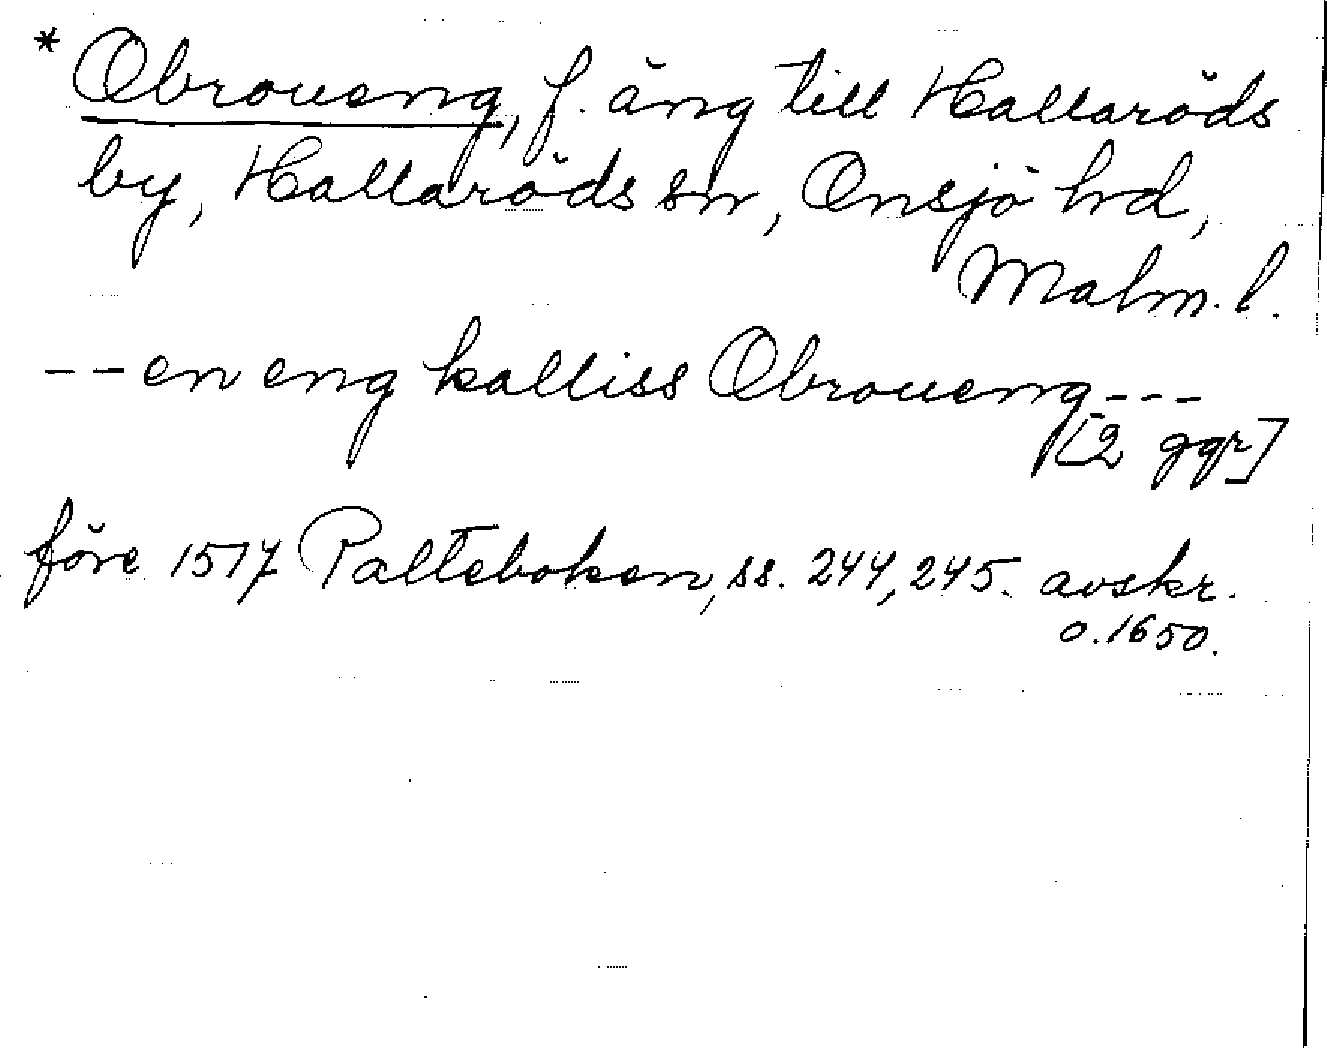 * Obroueng, f. äng till Hallaröds
by, Hallaröds sn, Onsjö hd,
Malm. l.
-- en eng kalliss Obroueng ---
[2 ggr]
före 1517 Palteboken, ss. 244, 245. avskr.
o. 1650.